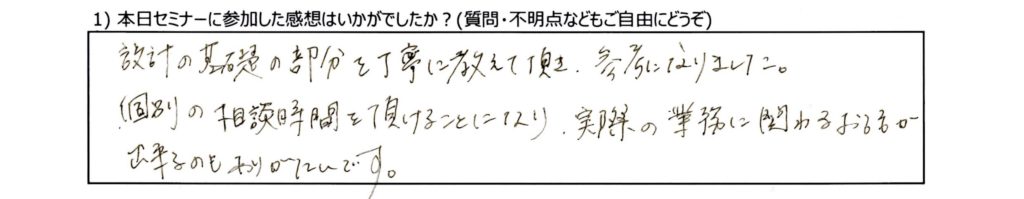 1) 本日セミナーに参加した感想はいかがでしたか？(質問・不明点などもご自由にどうぞ)
設計の基礎の部分を丁寧に教えて頂き、参考になりました。
個別の相談時間を頂けることになり、実際の業務に関わるお話が
出来るのもありがたいです。